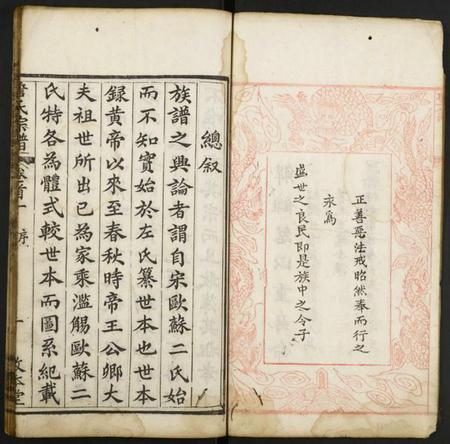 正善惡法戒昭然奉而行之
永為
盛世之良民即是族中之令子
總叙
族譜之興論者謂自宋歐蘇二氏始
而不知實始於左氏纂世本也世本
録黄帝以來至春秋時帝王公卿大
夫祖世所出已為家乘濫觴歐蘇二
氏特各為體式較世本而圖系紀載
氏宗譜
卷首一
序
一
敦本堂